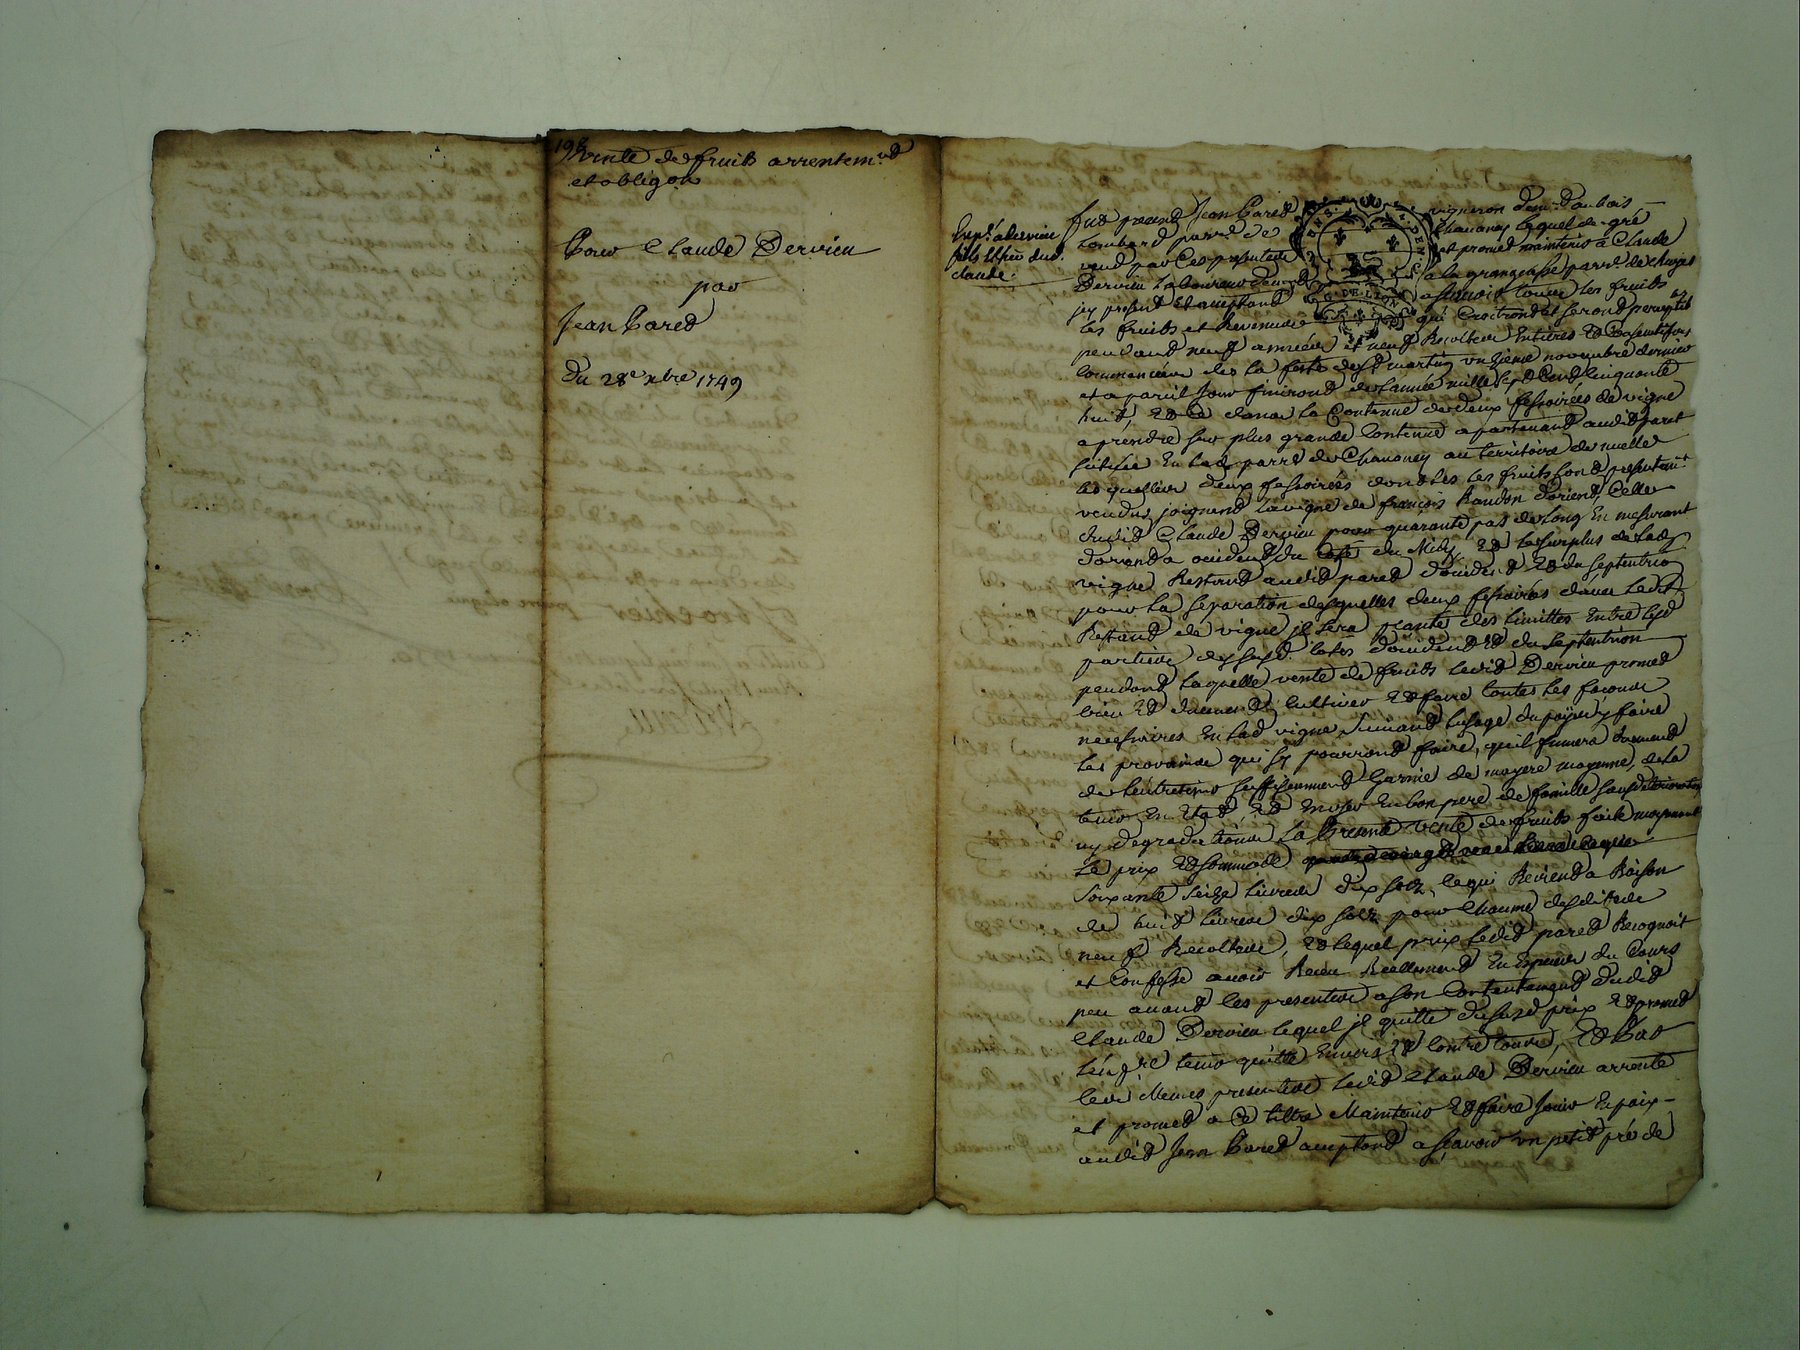 198
Vente de fruits arrentem.nt
et obligon
Pour Claude Dervieu
par
Jean Paret
Du 28e xbre 1749
Exp. a dervieu
fils et her dud.
claude.
fut present Jean Paret vigneron dem.t au bois
Lombard parr.e de Chauonay lequel de gré
vend par Ces presentes et promet maintenir a Claude
Dervieu Laboureur dem.t a la parr.e de
icy present et acceptant asscavoir tous les fruits
les fruits et Revenus qui Croitront et seront perceptibles
pendant neuf années et neuf Recoltes Entieres et Consecutives
commencées des la feste de St martin unzieme novembre dernier
et a pareil Jour finiront de Lannée mille sept Cent Cinquante
huit, et ce dans la Contenue de deux fessoirées de vigne
a prendre sur plus grande Contenue apartenant audit paret
située En lad. parr.e de Chauonay au territoire de
lesquelles deux fessoirées dont les fruits sont presentem.t
vendus joignent la vigne de françois Randon d'orient, Celle
dudit Claude Dervieu pour quarante pas de Long En mesurant
dorient a occident du du Midy et le surplus de lad.
vigne Restant audit paret d'occident et du septentrion
pour la separation desquelles deux fessoirées d'avec Ledit
Restant de vigne il sera planté des limittes Entre lesd.
parties desd. cotés d'occident et du septentrion
pendant laquelle vente de fruits ledit Dervieu promet
bien et duement Cultiver et faire toutes les façons
necessaires En lad. vigne suivant lusage du païs y faire
les provains qui s'y pourront faire, qu'il fumera duement
de Lentretenir suffisamment Garnie de moyere moyenne, de la
tenir En Etat, et En user En bon pere de famille sans deterioration
ny degradations La Presente vente de fruits faite moyenant
le prix et somme de
soixante seize Livres dix sols, ce qui Revient a Raison
de huit Livres dix sols pour Chacune desdites
neuf Recoltes, et lequel prix ledit paret Recognoit
et Confesse avoir Receu Reellement En Especes du Cours
peu avant les presentes a son Contentement dudit
Claude Dervieu lequel il quitte dususd. prix et promet
tenir quitte Envers et Contre tous, et Par
les Memes presentes ledit Claude Dervieu arrente
et promet a Ce tiltre Maintenir et faire Jouir En paix
audit Jean Paret acceptant asscavoir un petit pré de